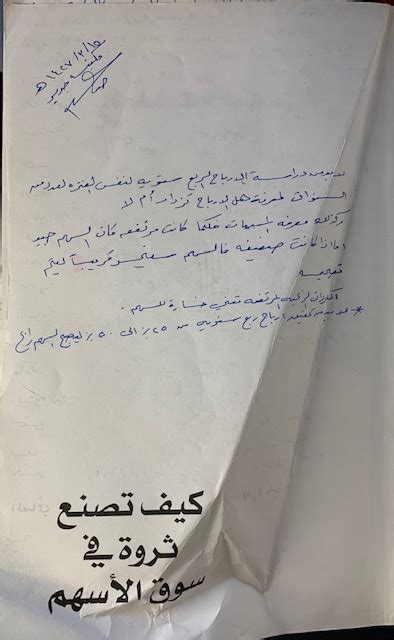 ١٤٢٧/٢/١٥ هـ
لا بد من دراسة الارباح الربع سنوية لنفس الفترة لعدد من
السنوات لمعرفة هل الارباح تزداد أم لا
وكذلك معرفة المبيعات فكلما كانت مرتفعه كان السهم جيد
اما اذا كانت ضعيفه فالسهم سيخسر قريباً ليتم
المرتفعه تعني خسارة للسهم .
* لا بد من تحقيق ارباح ربع سنويه من ٢٥٪ الى ٥٠٪ ليصبح السهم رابح
كيف تصنع
ثروة في
سوق الأسهم